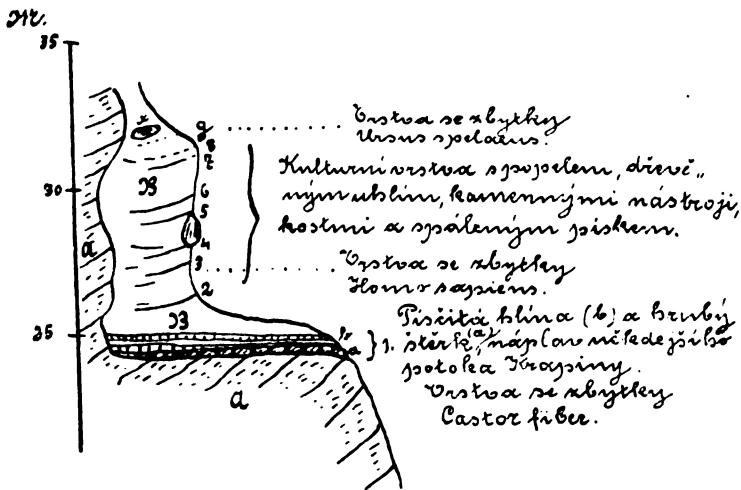 M.
35
30
25
x
9
8
7
6
5
4
3
2
B
B
a
a
b
a
} 1.
Vrstva se zbytky
Ursus spelaeus.
Kulturní vrstva s popelem, dřevě„
ným uhlím, kamennými nástroji,
kostmi a spáleným pískem.
Vrstva se zbytky
Homo sapiens.
Písčitá hlína (b) a hrubý
štěrk (a), náplav někdejšího
potoka Krapiny.
Vrstva se zbytky
Castor fiber.